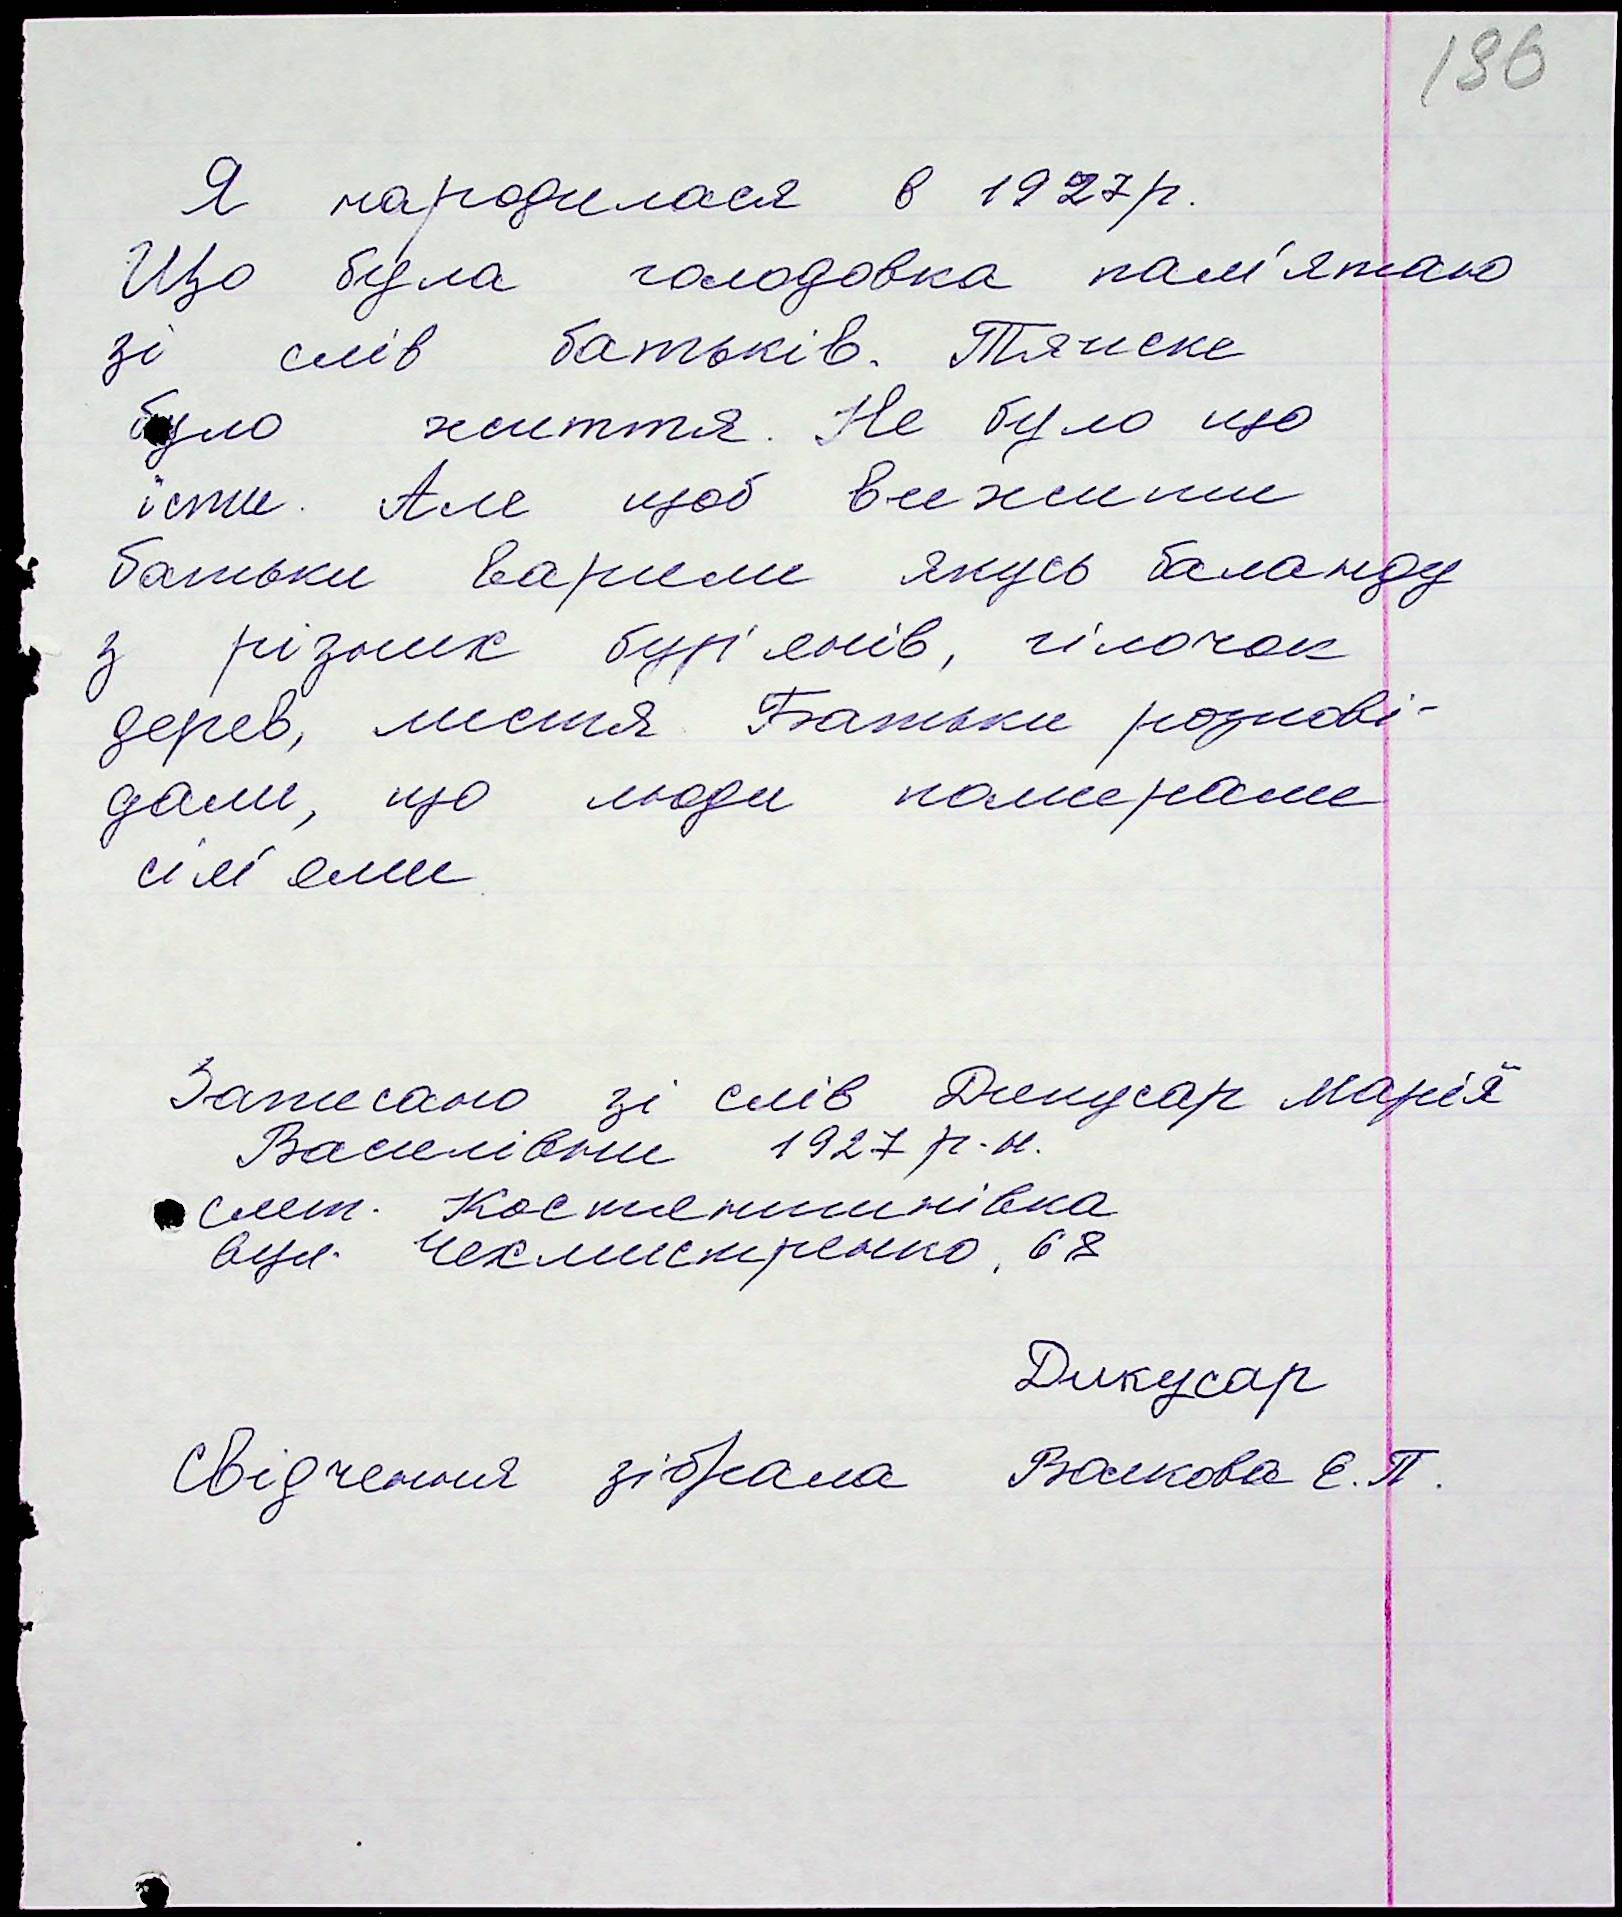 186
Я народилася в 1927р.
Що була голодовка пам'ятаю
зі слів батьків. Тяжке
було життя. Не було що
їсти. Але щоб вижити
батьки варили якусь баланду
з різних бур'янів, гілочок
дерев, листя. Батьки розпові-
дали, що люди помирали
сім'ями.
Записано зі слів Дикусар Марія
Василівни 1927 р.н.
смт. Костянтинівка
вул. Чехмистренко, 68
Дикусар
Свідчення зібрала Валкова Є.П.